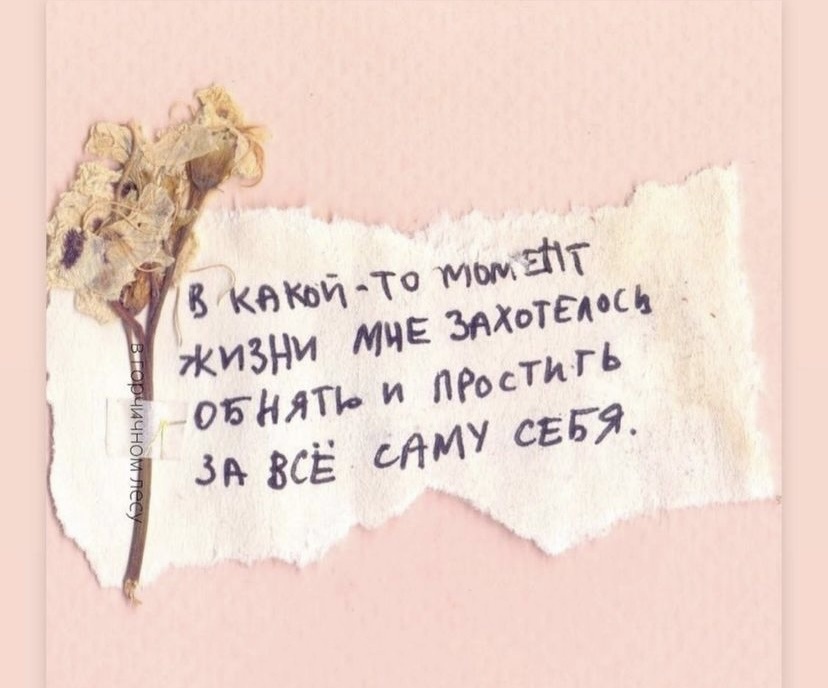 В КАКОЙ-ТО МОМЕНТ
ЖИЗНИ МНЕ ЗАХОТЕЛОСЬ
ОБНЯТЬ И ПРОСТИТЬ
ЗА ВСЁ САМУ СЕБЯ.
в горчичном лесу